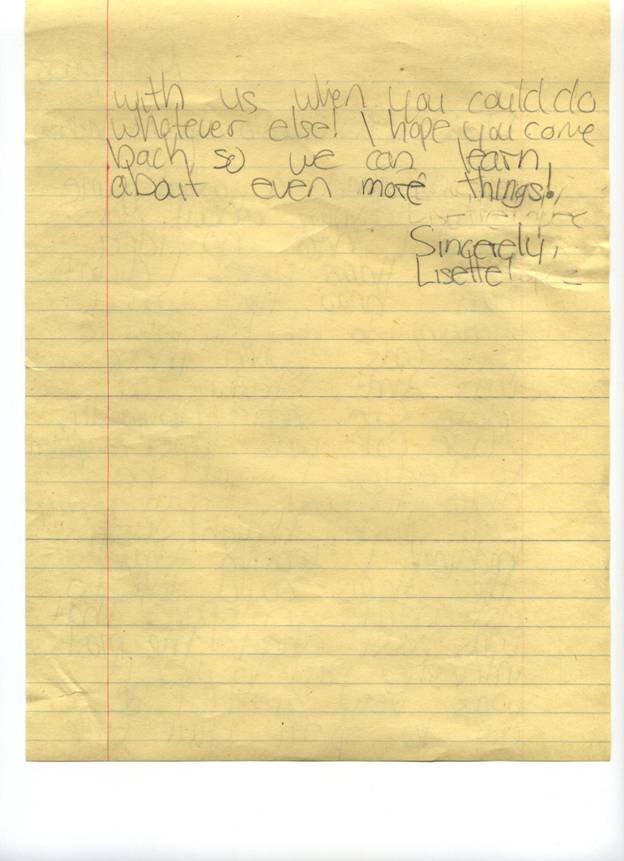 with us when you could do
whatever else! I hope you come
back so we can learn
about even more things!
Sincerely,
Lisette!